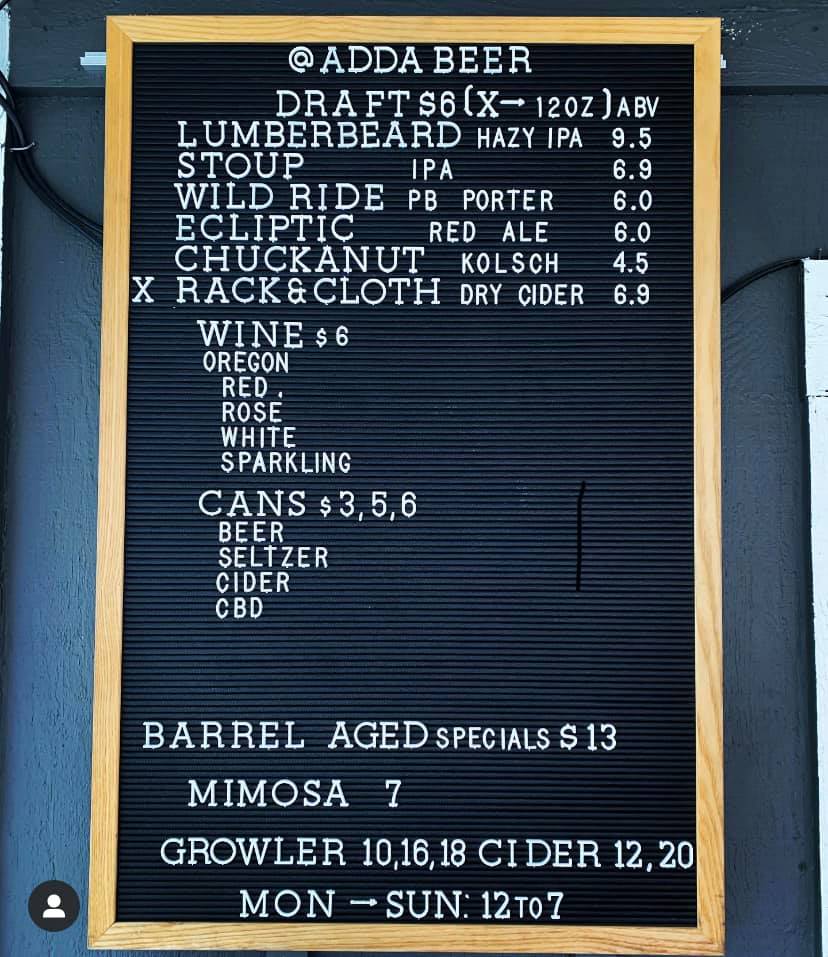 @ADDA BEER
DRAFT $6 (X→ 12OZ) ABV
LUMBERBEARD HAZY IPA 9.5
STOUP IPA 6.9
WILD RIDE PB PORTER 6.0
ECLIPTIC RED ALE 6.0
CHUCKANUT KOLSCH 4.5
X RACK&CLOTH DRY CIDER 6.9
WINE $6
OREGON
RED.
ROSE
WHITE
SPARKLING
CANS $3,5,6
BEER
SELTZER
CIDER
CBD
BARREL AGED SPECIALS $13
MIMOSA 7
GROWLER 10,16,18 CIDER 12,20
MON → SUN: 12 TO 7